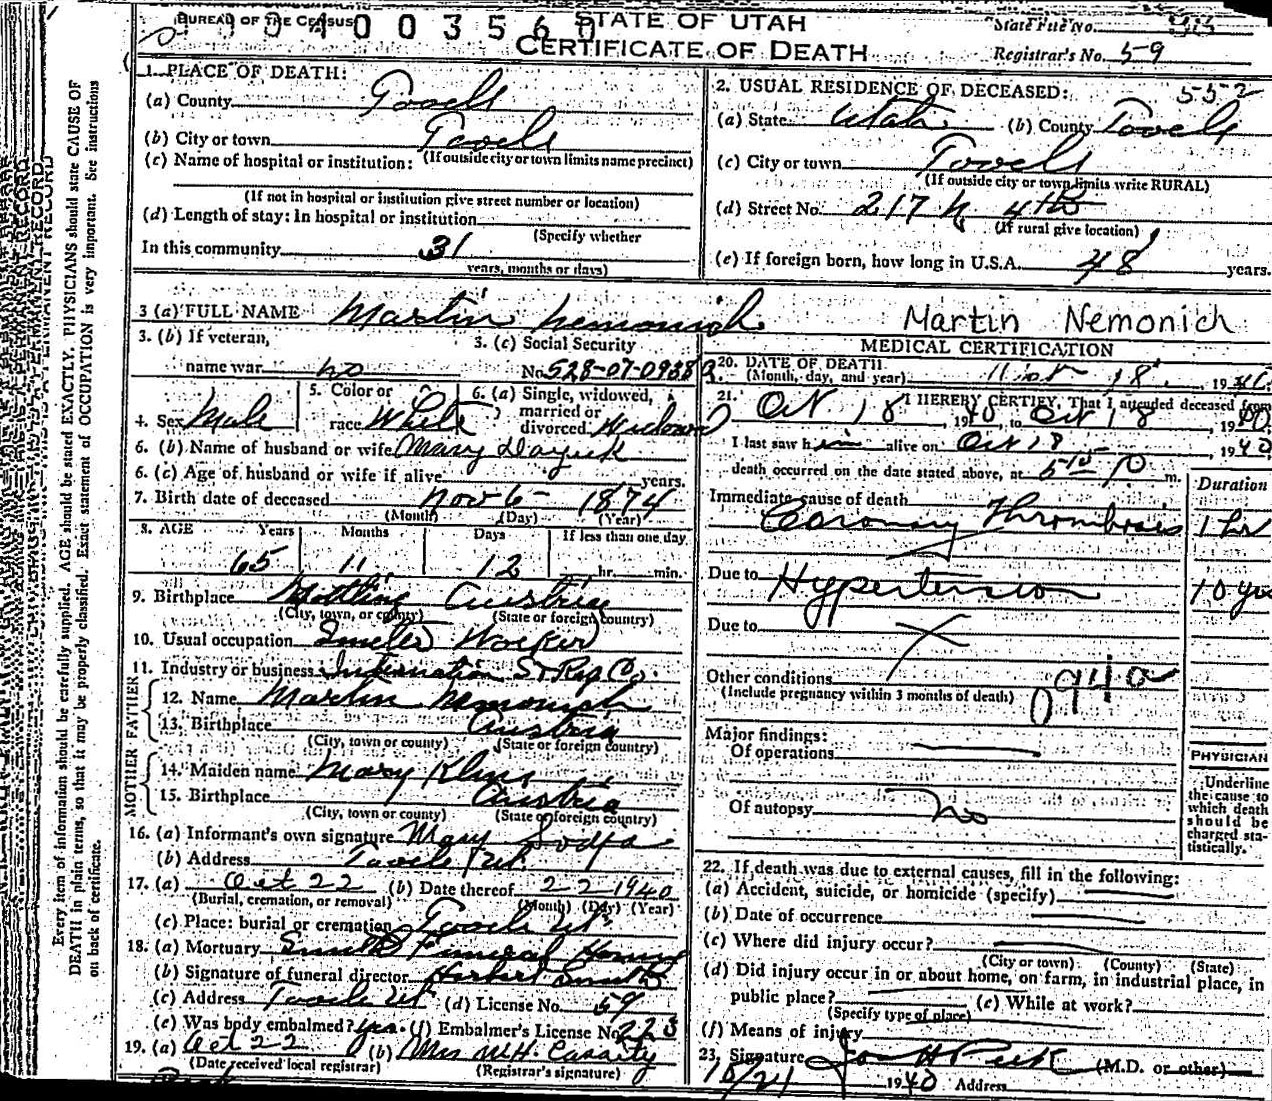 BUREAU OF THE CENSUS
STATE OF UTAH
CERTIFICATE OF DEATH
State File No.
Registrar's No. 59
1. PLACE OF DEATH:
(a) County Tooele
(b) City or town Tooele
(If outside city or town limits name precinct)
(c) Name of hospital or institution:
(If not in hospital or institution give street number or location)
(d) Length of stay: In hospital or institution
(Specify whether
In this community 31
years, months or days)
2. USUAL RESIDENCE OF DECEASED: 552
(a) State Utah (b) County Tooele
(c) City or town Tooele
(If outside city or town limits write RURAL)
(d) Street No. 217 N 4th
(If rural give location)
(e) If foreign born, how long in U.S.A. 48 years.
3 (a) FULL NAME Martin Nemonich Martin Nemonich
3. (b) If veteran, name war no
3. (c) Social Security No. 528-07-0938
4. Sex Male
5. Color or race White
6. (a) Single, widowed, married or divorced Widowed
6. (b) Name of husband or wife Mary
6. (c) Age of husband or wife if alive years.
7. Birth date of deceased Nov 6 - 1874
(Month) (Day) (Year)
8. AGE Years Months Days If less than one day
65 11 12 hr. min.
9. Birthplace Mottling Austria
(City, town, or county) (State or foreign country)
10. Usual occupation Smelter Worker
11. Industry or business
FATHER
12. Name Martin Nemonich
13. Birthplace Austria
(City, town or county) (State or foreign country)
MOTHER
14. Maiden name Mary
15. Birthplace Austria
(City, town or county) (State or foreign country)
16. (a) Informant's own signature Mary
(b) Address Tooele Ut.
17. (a) Oct 22 (b) Date thereof 22 1940
(Burial, cremation, or removal) (Month) (Day) (Year)
(c) Place: burial or cremation Tooele Ut.
18. (a) Mortuary Smith Funeral Home
(b) Signature of funeral director Herbert Smith
(c) Address Tooele Ut (d) License No. 59
(e) Was body embalmed? Yes. (f) Embalmer's License No. 223
19. (a) Oct 22 (b) Mrs W.H. Cassity
(Date received local registrar) (Registrar's signature)
MEDICAL CERTIFICATION
20. DATE OF DEATH
(Month, day, and year) 18. 1940
21. I HEREBY CERTIFY, That I attended deceased from
Oct 18, 1940, to Oct 18, 1940
I last saw him alive on Oct 18 1940
death occurred on the date stated above, at 5 15 P m.
Duration
Immediate cause of death
Coronary Thrombosis 1 hr
Due to Hypertension 10 yrs
Due to
Other conditions
(Include pregnancy within 3 months of death) 094a
Major findings:
Of operations
Of autopsy no
PHYSICIAN
Underline the cause to which death should be charged statistically.
22. If death was due to external causes, fill in the following:
(a) Accident, suicide, or homicide (specify)
(b) Date of occurrence
(c) Where did injury occur?
(City or town) (County) (State)
(d) Did injury occur in or about home, on farm, in industrial place, in
public place? (e) While at work?
(Specify type of place)
(f) Means of injury
23. Signature Jos H Peck (M.D. or other)
10/21 1940 Address
Every item of information should be carefully supplied. AGE should be stated EXACTLY. PHYSICIANS should state CAUSE OF
DEATH in plain terms, so that it may be properly classified. Exact statement of OCCUPATION is very important. See instructions
on back of certificate.